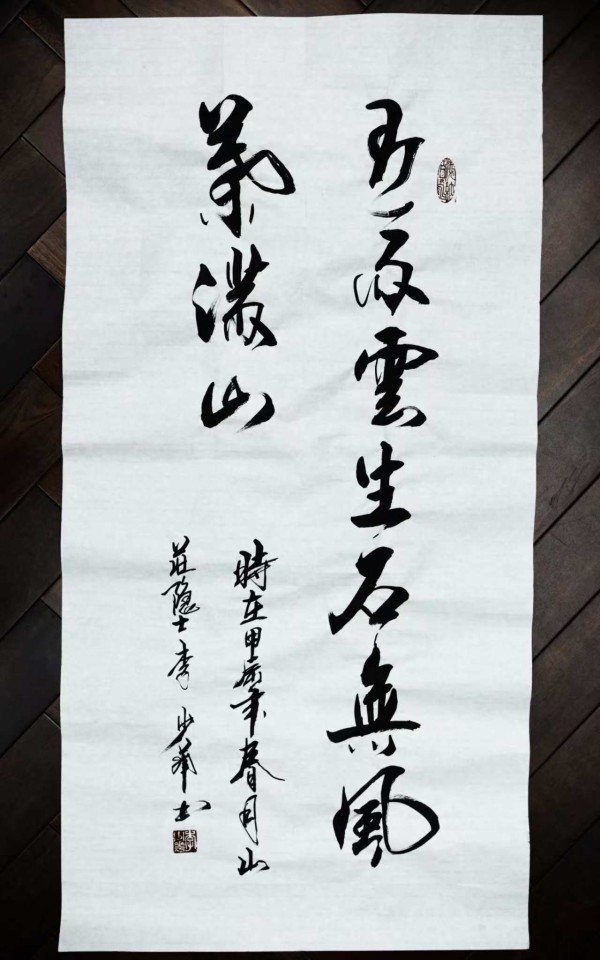 有雨雲生石無風
葉滿山
時在甲辰年春月山
莊隱士李少 书